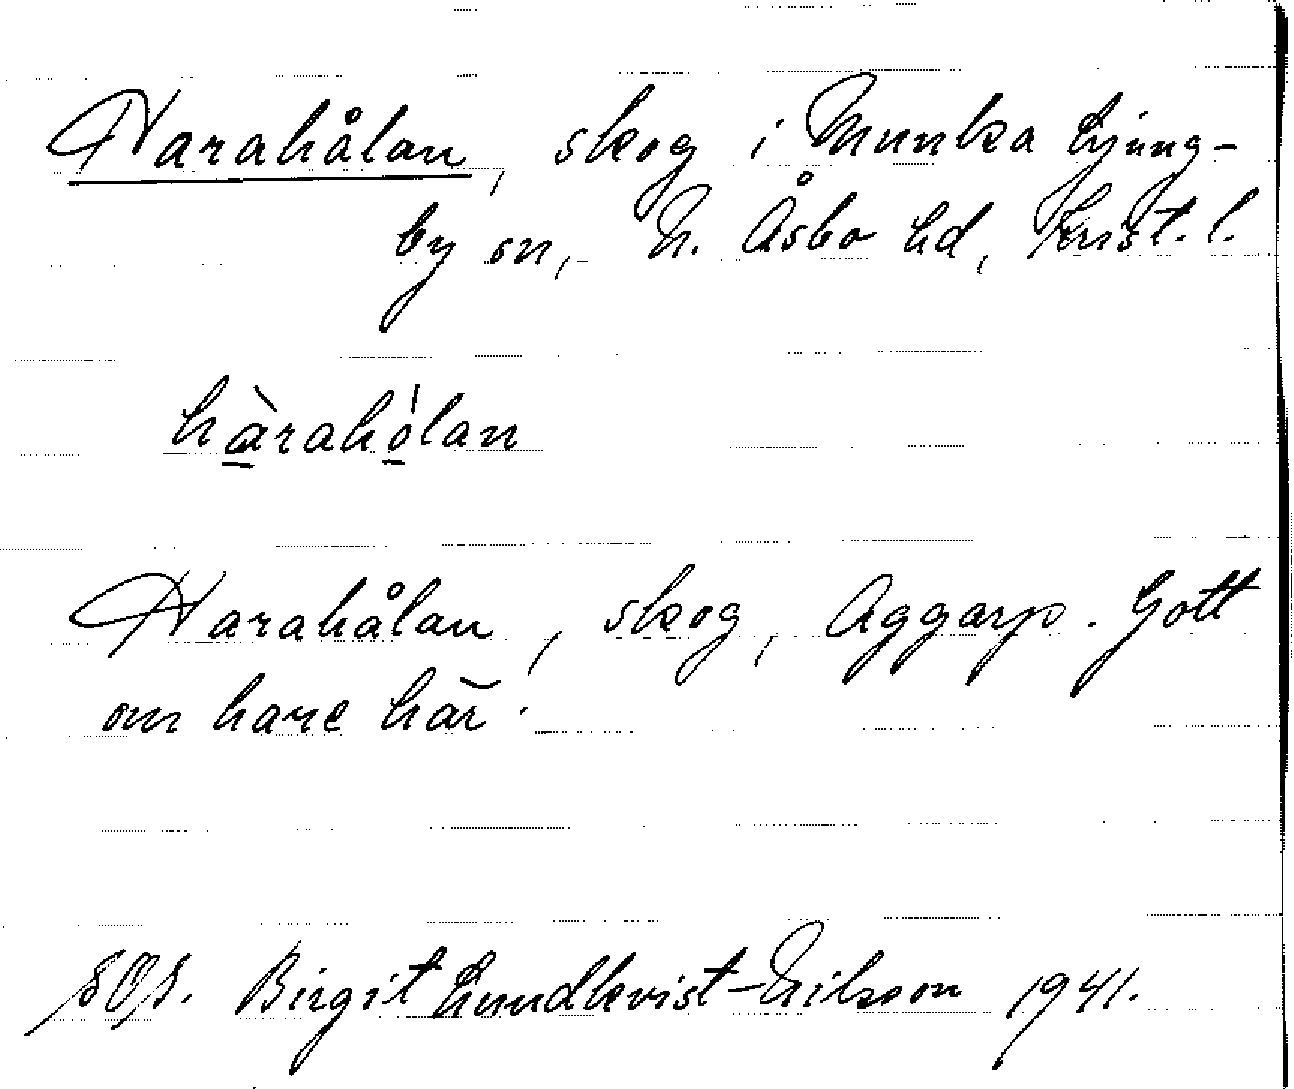 Harahålan, skog i Munka Ljung-
by sn, N. Åsbo hd, Krist. l.
hàrahólan
Harahålan, skog, Aggarp. Gott
om hare här.
Birgit Lundkvist-Nilsson 1941.